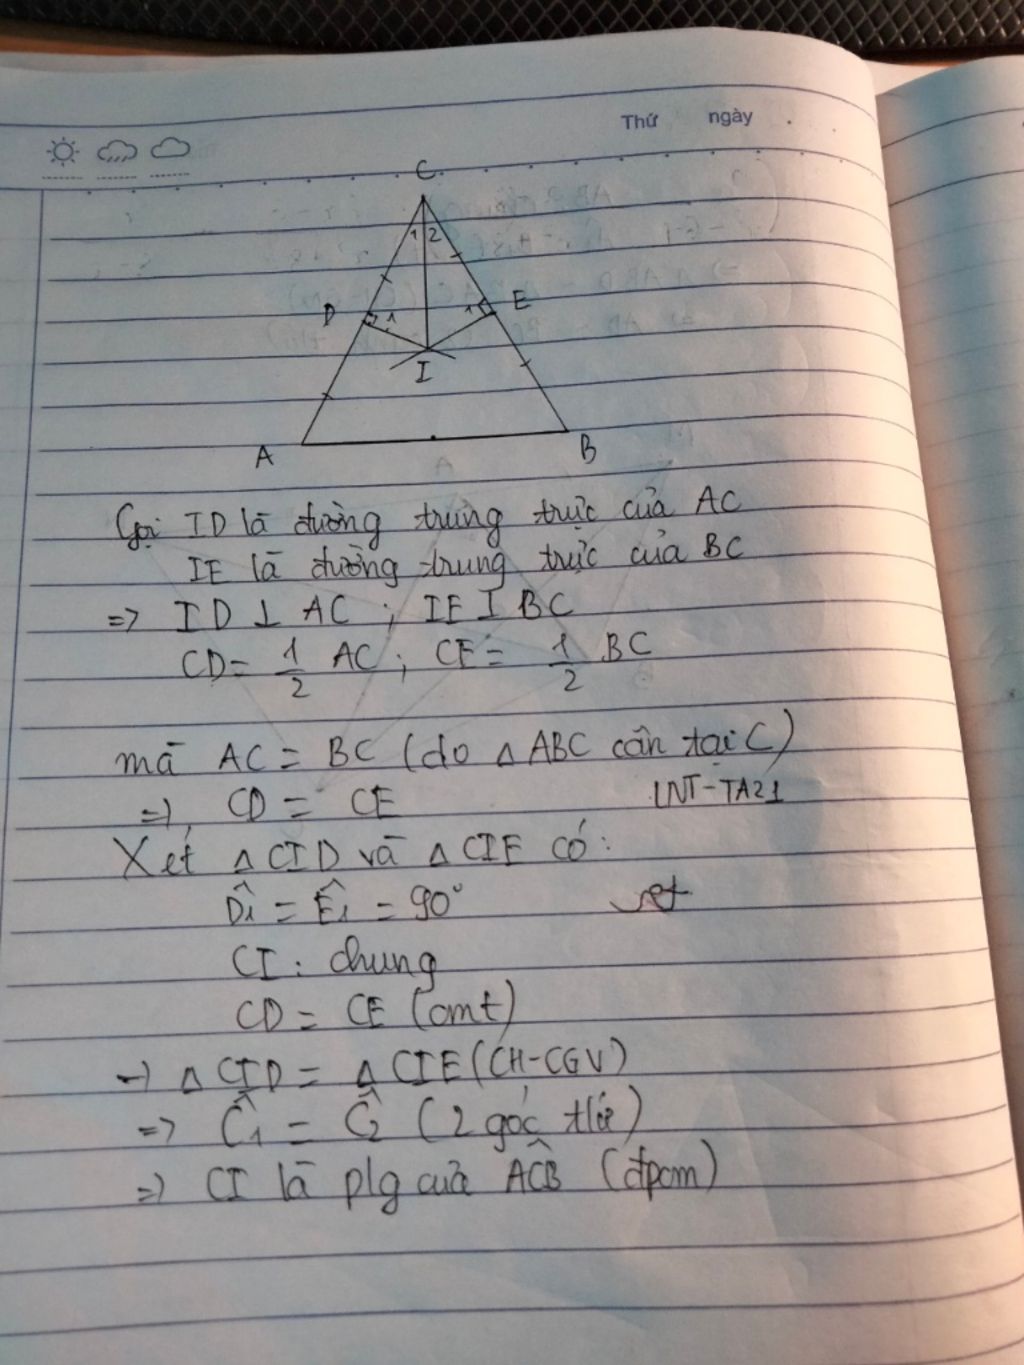 Thứ ngày
C
1 2
D 1 1 E
I
A B
Gọi ID là đường trung trực của AC
IE là đường trung trực của BC
=> ID ⊥ AC ; IE ⊥ BC
CD = 1/2 AC ; CE = 1/2 BC
mà AC = BC (do △ABC cân tại C)
=> CD = CE LNT-TA21
Xét △CID và △CIE có:
D̂1 = Ê1 = 90°
CI : chung
CD = CE (cmt)
=> △CID = △CIE (CH-CGV)
=> Ĉ1 = Ĉ2 (2 góc tứ)
=> CI là plg của AĈB (đpcm)